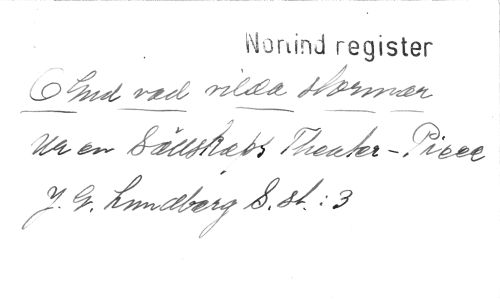 Norlind register
O Gud vad vilda stormar
Ur en Sällskaps Theater-Piece
J. G. Lundberg S. st. : 3